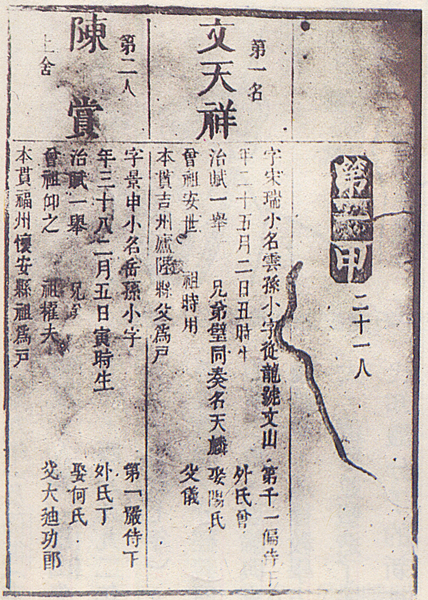 第一甲
二十一人
第一名
文天祥
字宋瑞小名雲孫小字從龍號文山 第千一偏侍下
年二十五月二日丑時生 外氏曾
治賦一舉 兄弟璧同奏名天麟 娶陽氏
曾祖安世 祖時用 父儀
本貫吉州廬陵縣父爲戶
第二人
陳賞
上舍
字景申小名岳孫小字 第一嚴侍下
年三十八二月五日寅時生 外氏丁
治賦一舉 兄 娶何氏
曾祖仰之 祖擢夫 父大廸功郎
本貫福州懷安縣祖爲戶